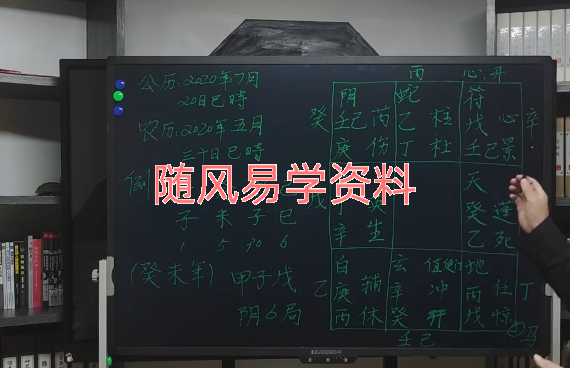 公历:2020年7月
20日巳時
农历:2020年五月
三十日巳時
子 未 子 巳
1 5 30 6
(癸未年) 甲子戊
阴6局
随风易学资料
丙 心.开
癸 阴 蛇 符
壬己 芮 乙 柱 戊 心 辛
庚 伤 丁 杜 壬己 景
天
癸
乙 死
辛 生
乙 白 玄 值 地
庚 辅 辛 冲 丙 任 丁
丙 休 癸 开 戊 惊
壬己 马